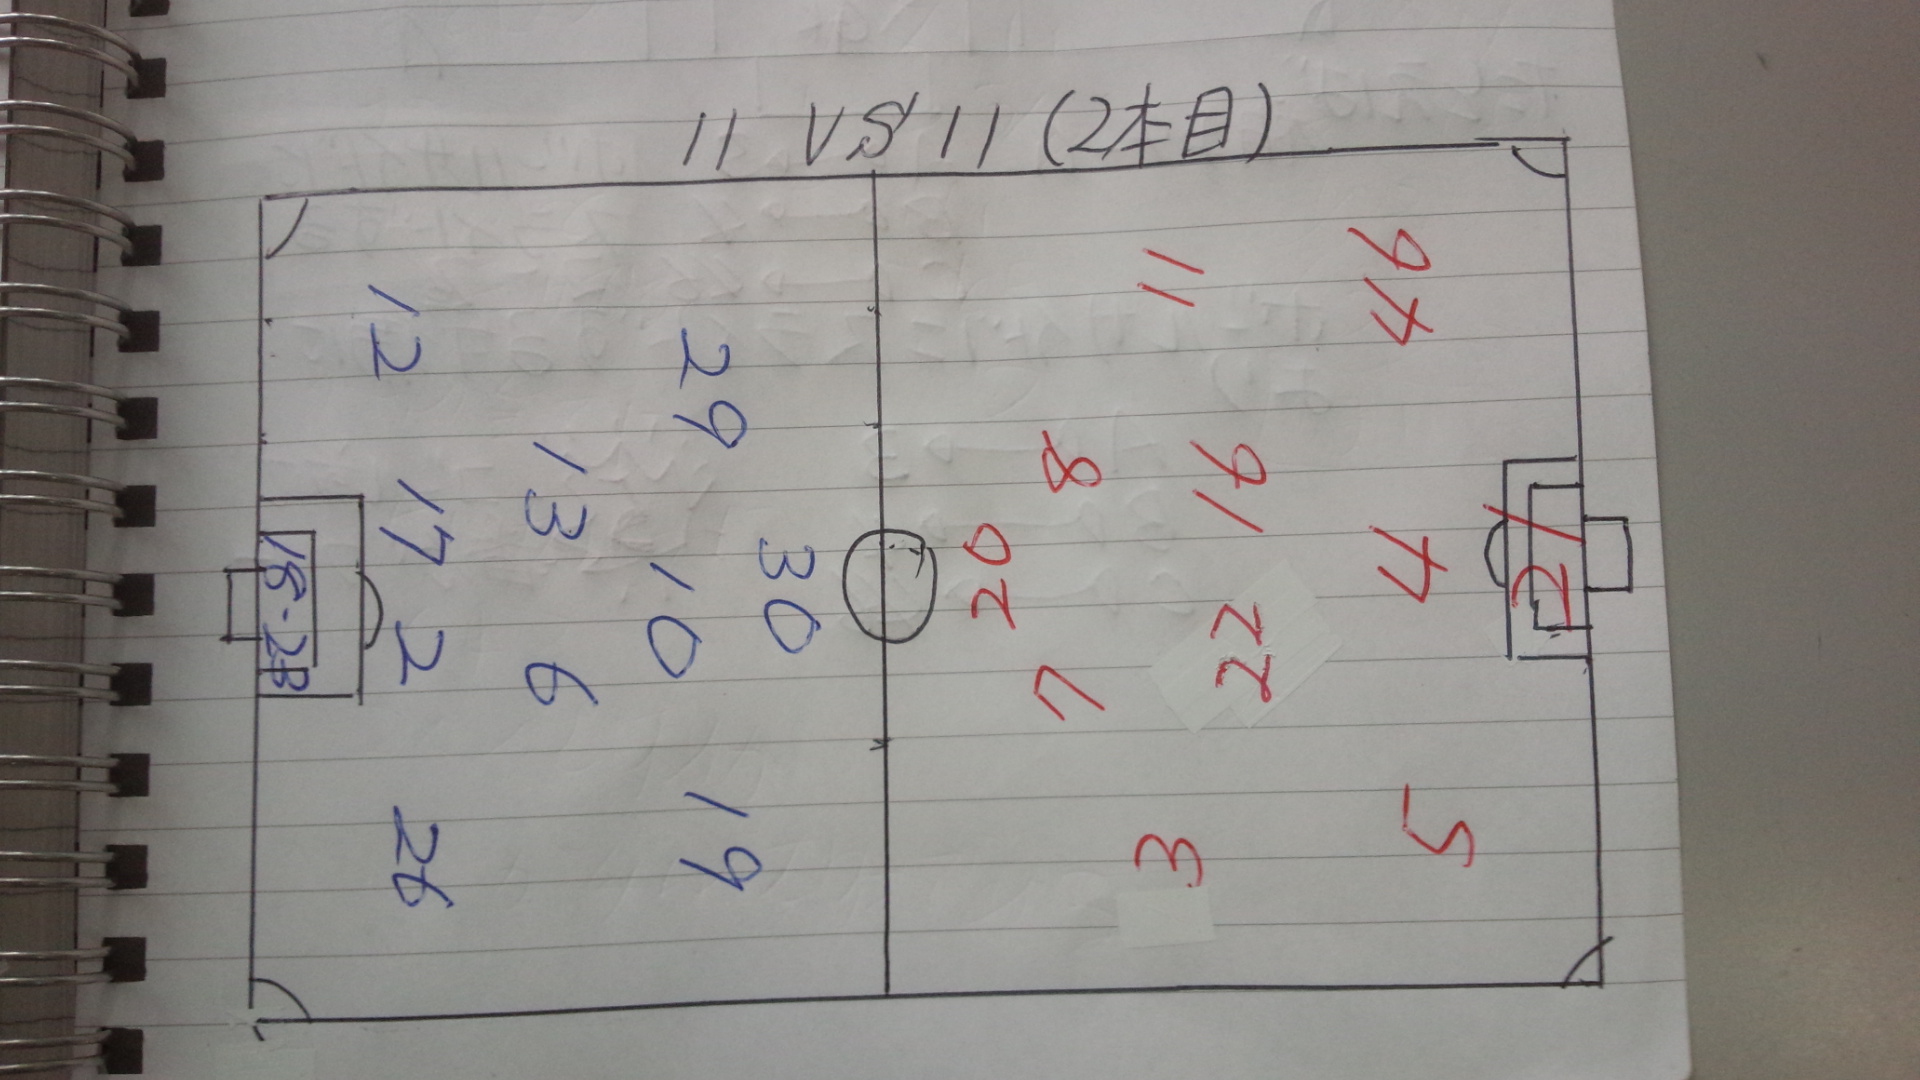 11 VS 11 (2本目)
12
17
2
26
13
6
29
10
19
30
18-28
20
8
7
11
16
22
3
46
4
5
21